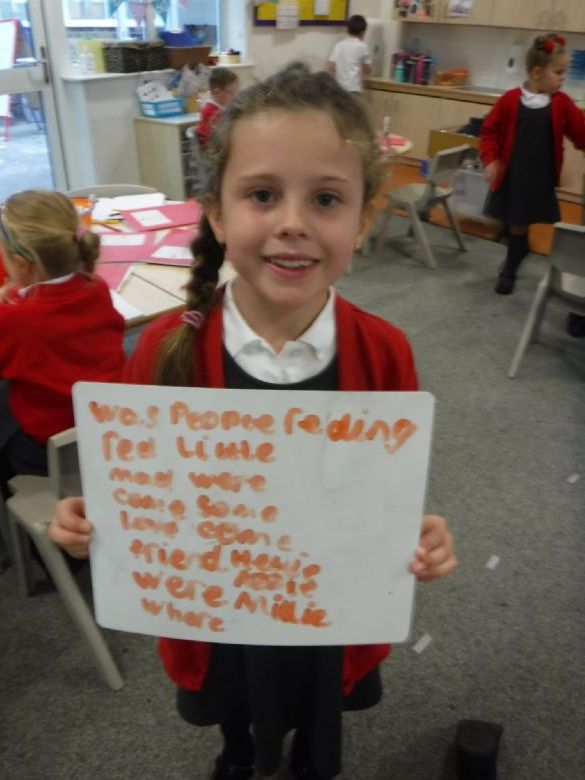 was People reding
red Little
mad were
come some
love come
friend Hewie
were Addie
where Millie